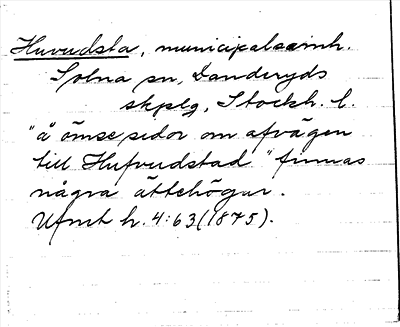 Huvudsta, municipalsamh.
Solna sn, Danderyds
skplg, Stockh. l.
"å ömse sidor om afvägen
till Hufvudstad" finnas
några ättehögar.
Ufmt h. 4:63 (1875).